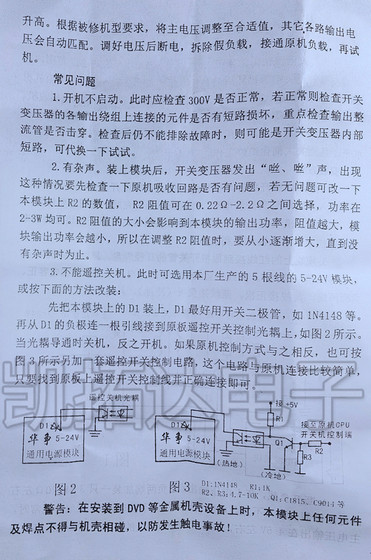 升高。根据被修机型要求，将主电压调整至合适值，其它各路输出电
压会自动匹配。调好电压后断电，拆除假负载，接通原机负载，再试
机。
常见问题
1.开机不启动。此时应检查300V是否正常，若正常则检查开关
变压器的各输出绕组上连接的元件是否有短路损坏，重点检查输出整
流管是否击穿。检查后仍不能排除故障时，则可能是开关变压器内部
短路，可代换一下试试。
2.有杂声。装上模块后，开关变压器发出“咝、咝”声，出现
这种情况要先检查一下原机吸收回路是否有问题，若无问题可改一下
本模块上R2的数值，R2阻值可在0.22Ω-2.2Ω之间选择，功率在
2-3W均可。R2阻值的大小会影响到本模块的输出功率，阻值越大，模
块输出功率会越小，所以在调整R2阻值时，要从小逐渐增大，直到没
有杂声时为止。
3.不能遥控关机。此时可选用本厂生产的5根线的5-24V模块，
或按下面的方法改装：
先把本模块上的D1装上，D1最好用开关二极管，如1N4148等。
再从D1的负极连一根引线接到原板遥控开关控制光耦上，如图2所示。
当光耦导通时关机，反之开机。如果原机控制方式与之相反，也可按
图3所示另加一套遥控开关控制电路，这个电路与原机连接比较简单，
只要找到原板上遥控开关控制线并正确连接即可。
凯拓达电子
遥控关机光耦
D1
华事5-24V
通用电源模块
图2
D1
华事5-24V
通用电源模块
(热地)
(冷地)
接+5V
R1
Q1
R2
R3
接至原机CPU
开关机控制端
图3
D1:1N4148 R1:1K
R2、R3:4.7-10K Q1:C1815、C9014等
警告：在安装到DVD等金属机壳设备上时，本模块上任何元件
及焊点不得与机壳相碰，以防发生触电事故！